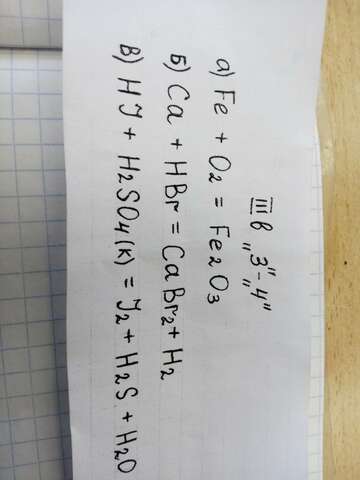 III в „3"-„4"
а) Fe + O2 = Fe2O3
Б) Ca + HBr = CaBr2 + H2
В) HJ + H2SO4(к) = J2 + H2S + H2O